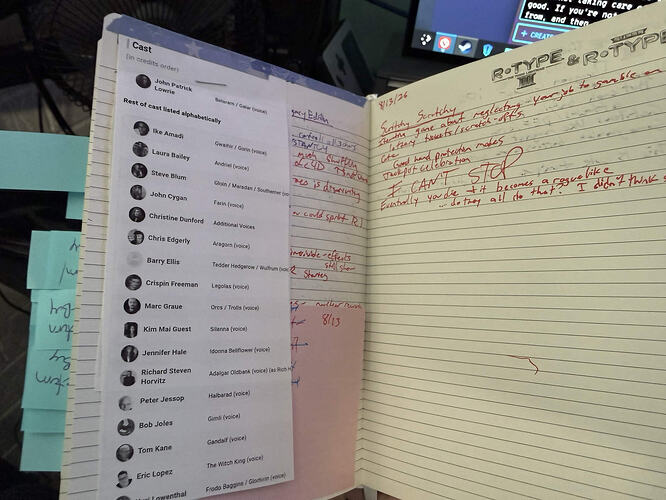 Cast
(in credits order)
John Patrick Lowrie
Beleram / Gaiar (voice)
Rest of cast listed alphabetically
Ike Amadi
Gwaihir / Gorin (voice)
Laura Bailey
Andriel (voice)
Steve Blum
Gloin / Meradan / Southerner (voice)
John Cygan
Farin (voice)
Christine Dunford
Additional Voices
Chris Edgerly
Aragorn (voice)
Barry Ellis
Tedder Hedgerow / Wulfrum (voice)
Crispin Freeman
Legolas (voice)
Marc Graue
Orcs / Trolls (voice)
Kim Mai Guest
Silanna (voice)
Jennifer Hale
Idonna Bellflower (voice)
Richard Steven Horvitz
Adalgar Oldbank (voice) (as Rich H
Peter Jessop
Halbarad (voice)
Bob Joles
Gimli (voice)
Tom Kane
Gandalf (voice)
Eric Lopez
The Witch King (voice)
Lowenthal
Frodo Baggins / Glorfirin (voice)
Edition
could sprint
still show
8/13
good. If you're no
from, and then
+ CREATE
R·TYPE III & R·TYPE
8/13/26
Scritchy Scratchy
game about neglecting your job to gamble on
lottery tickets/scratch-offs.
Cute
Good hand protection makes
Jackpot celebration
I CAN'T STOP
Eventually you die & it becomes a roguelike
- do they all do that? I didn't think